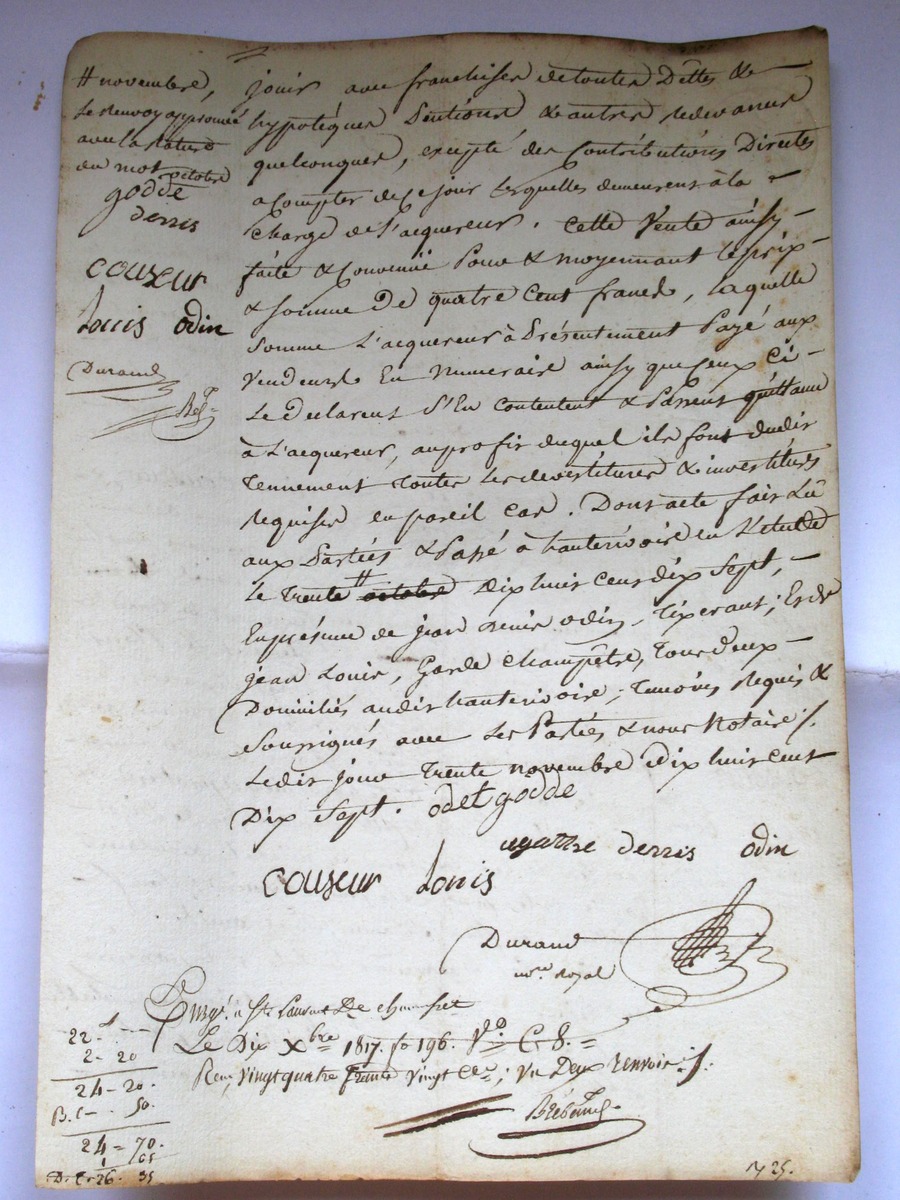 # novembre,
Le Renvoy approuvé
avec la rature
du mot octobre
godde
derris
couzeur
Louis odin
Durand
jouir avec franchise de toutes Dettes &
hypotèques Pentions & autres redevances
quelconques, excepté des Contributions Directes
a Compter de ce jour lesquelles demeurent à la
Charge de l'acquereur. Cette Vente ainsy
faite & Convenüe Pour & moyennant le prix
& Somme De quatre Cent francs, laquelle
Somme L'acquereur à Présentement Payé aux
Vendeurs En Numeraire ainsy que Ceux Ci
Le Declarent S'En Contentent & Passent quittance
à L'acquereur, au profit duquel ils font dudit
Tennement Toutes Les devestitures & investitures
Requises en pareil Cas. Dont acte fait Lû
aux Parties & Passé à hauterivoire en L'etude
Le Trente # octobre Dix huit Cent dix Sept,
En présence de jean Denis odin, Tixerant; Et de
jean Louis, Garde Champêtre, Tous deux
Domiciliés audit hauterivoire; Temoins Requis &
Soussignés avec Les Parties & nous Notaire ./.
Ledit jour Trente novembre Dix huit Cent
Dix Sept. odet godde
agathe derris odin
couzeur Louis
Durand
nore royal
Enregé. à St. Laurent De chamousset
Le Dix Xbre 1817. fo 196. Vo C. 8.
Reçu Vingt quatre francs Vingt Ces; Vu Deux renvois ./.
22 -
2 - 20
24 - 20.
50.
24 - 70.
1 65
26. 35